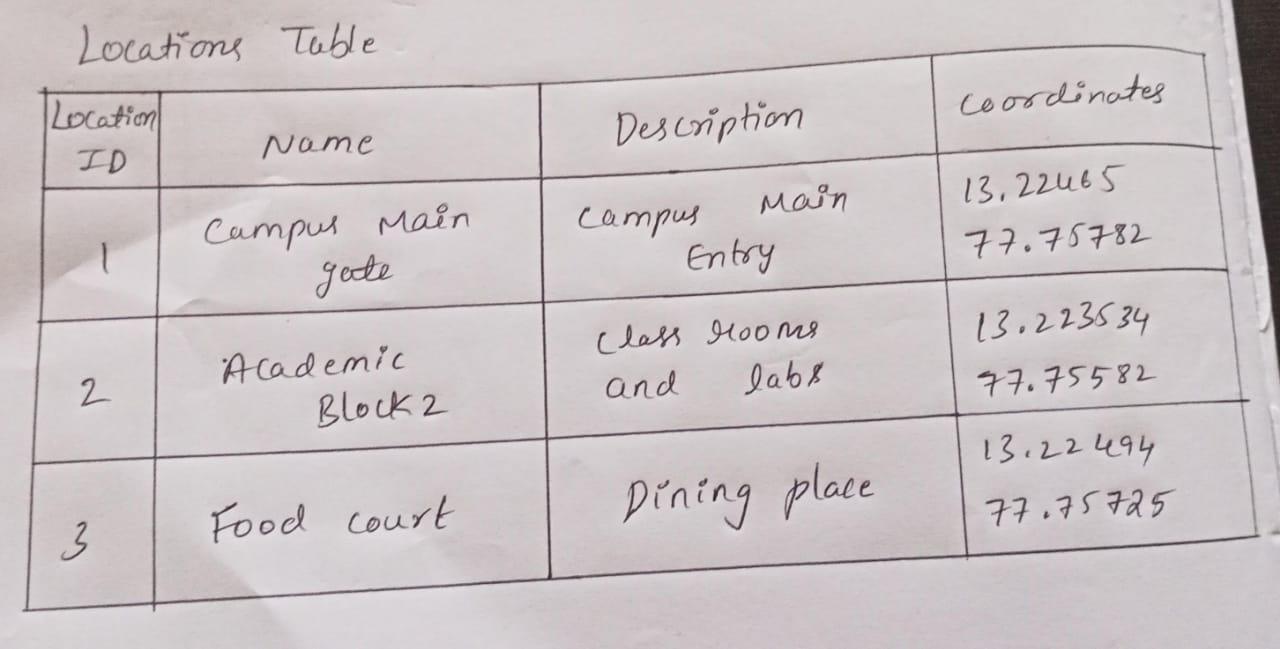 Locations Table
Location ID
Name
Description
Coordinates
1
Campus Main
gate
Campus Main
Entry
13.22465
77.75782
2
Academic
Block 2
Class rooms
and labs
13.223534
77.75582
3
Food court
Dining place
13.22494
77.75725